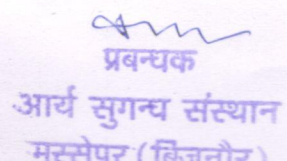 प्रबन्धक
आर्य सुगन्ध संस्थान
मस्सेपुर (बिजनौर)